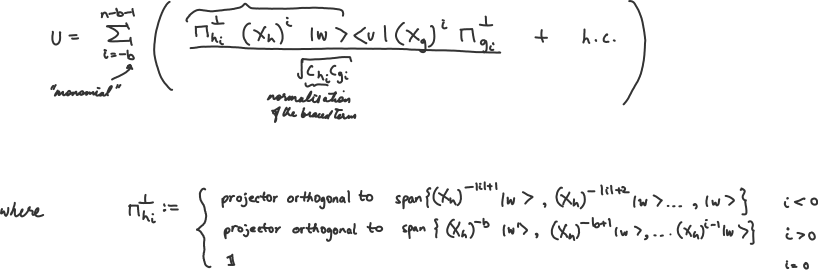 n-b-1
U = Σ ( Π⊥_{h_i} (X_h)^i |w> <v| (X_g)^i Π⊥_{g_i} / √(c_{h_i} c_{g_i}) + h.c. )
i=-b
"monomial"
normalisation
of the braced term
where Π⊥_{h_i} := {
projector orthogonal to span{(X_h)^{-|i|+1} |w>, (X_h)^{-|i|+2} |w> ..., |w>} i<0
projector orthogonal to span{(X_h)^{-b} |w>, (X_h)^{-b+1} |w>, ... (X_h)^{i-1} |w>} i>0
𝟙 i=0